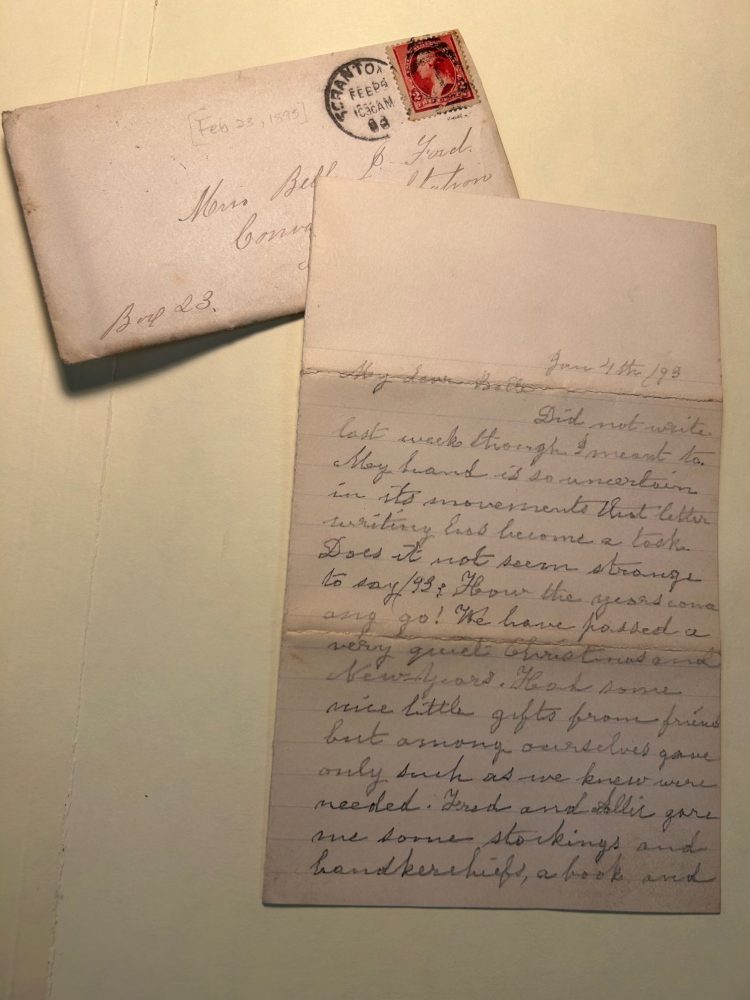 SCRANTON
FEB 24
1030AM
93
2
2
[Feb 23, 1893]
Miss Belle P. Ford.
Station
Box 23.
Jan 4th /93
My Dear Belle
Did not write
last week though I meant to.
My hand is so uncertain
in its movements that letter
writing has become a task.
Does it not seem strange
to say /93? How the years come
and go! We have passed a
very quiet Christmas and
New-Years. Had some
nice little gifts from friends
but among ourselves gave
only such as we knew were
needed. Fred and Allie gave
me some stockings and
handkerchiefs, a book and